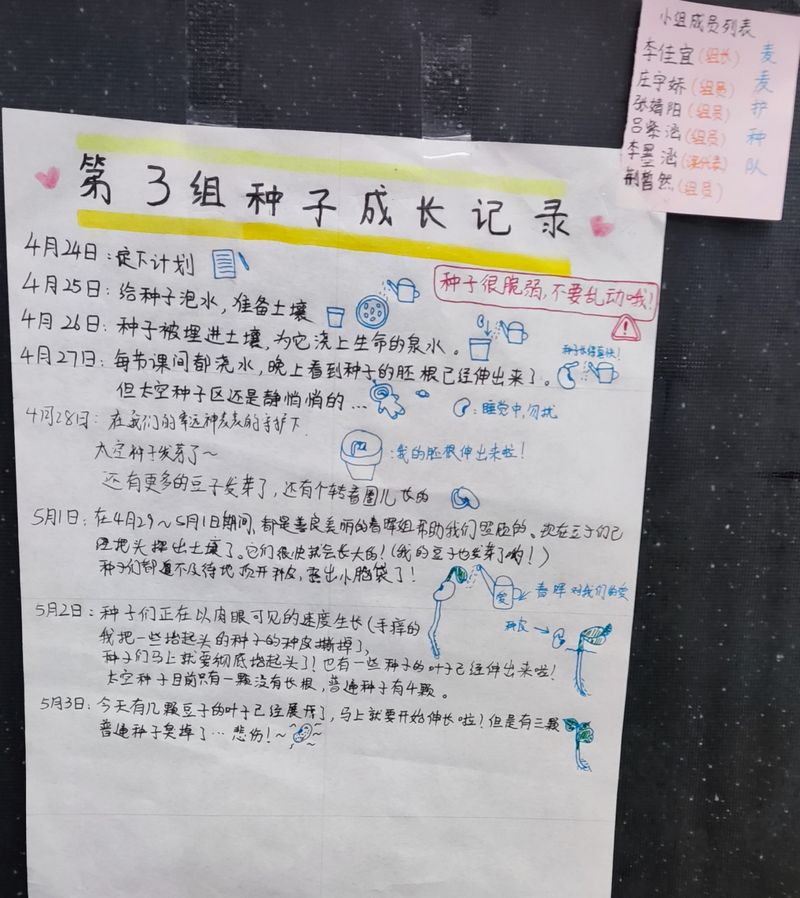 小组成员列表
李佳宜(组长) 麦
庄宇娇(组员) 麦
张婧阳(组员) 护
吕紫涵(组员) 种
李墨涵(课代表) 队
荆皙然(组员)
第3组种子成长记录
4月24日:定下计划
种子很脆弱,不要乱动哦!
4月25日:给种子泡水,准备土壤
4月26日:种子被埋进土壤,为它浇上生命的泉水。
种子长得真快!
4月27日:每节课间都浇水,晚上看到种子的胚根已经伸出来了。
但太空种子区还是静悄悄的...
:睡觉中,勿扰
4月28日:在我们的幸运神麦麦的守护下
太空种子发芽了~
:我的胚根伸出来啦!
还有更多的豆子发芽了,还有个转着圈儿长的
5月1日:在4月29~5月1日期间,都是善良美丽的春晖组帮助我们照顾的。现在豆子们已
经把头探出土壤了。它们很快就会长大的!(我的豆子也发芽了哟!)
种子们都迫不及待地顶开种皮,露出小脑袋了!
爱
春晖对我们的爱
5月2日:种子们正在以肉眼可见的速度生长(手痒的
我把一些抬起头的种子的种皮撕掉了)
种皮
种子们马上就要彻底抬起头了!也有一些种子的叶子已经伸出来啦!
太空种子目前只有一颗没有长根,普通种子有4颗。
5月3日:今天有几颗豆子的叶子已经展开了,马上就要开始伸长啦!但是有三颗
普通种子臭掉了...悲伤!~